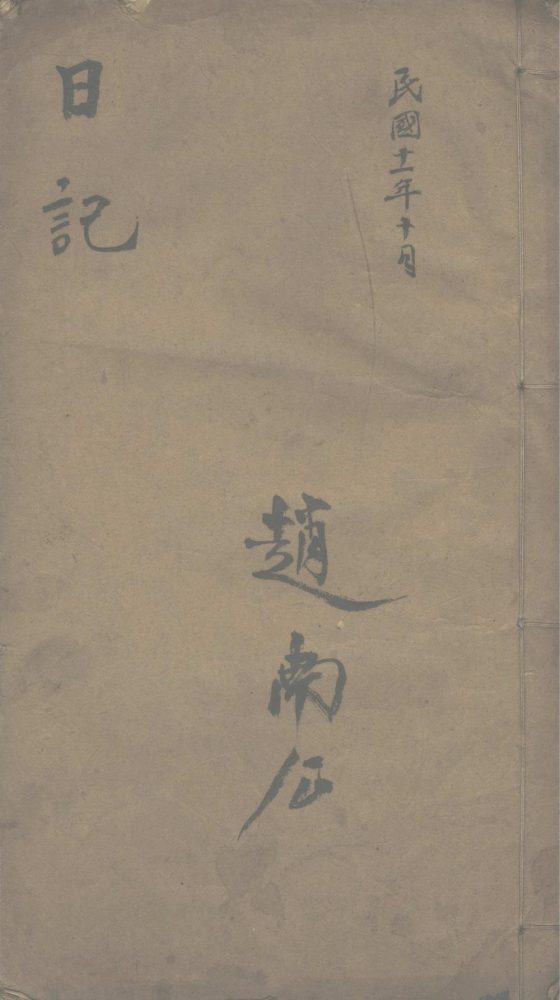 民國十一年十月
趙南公
日記